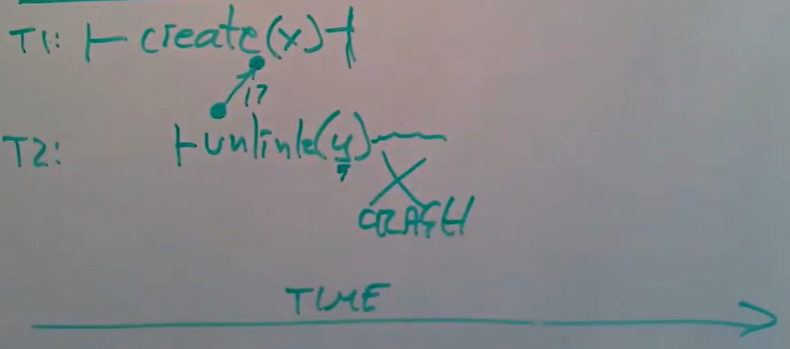 T1: create(x)
17
T2: unlink(y)
CRASH
TIME